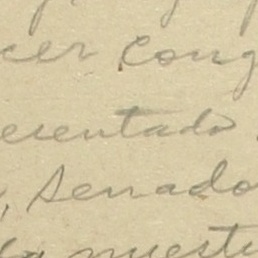 cer Cong
esentado
, Senado
la nuesti